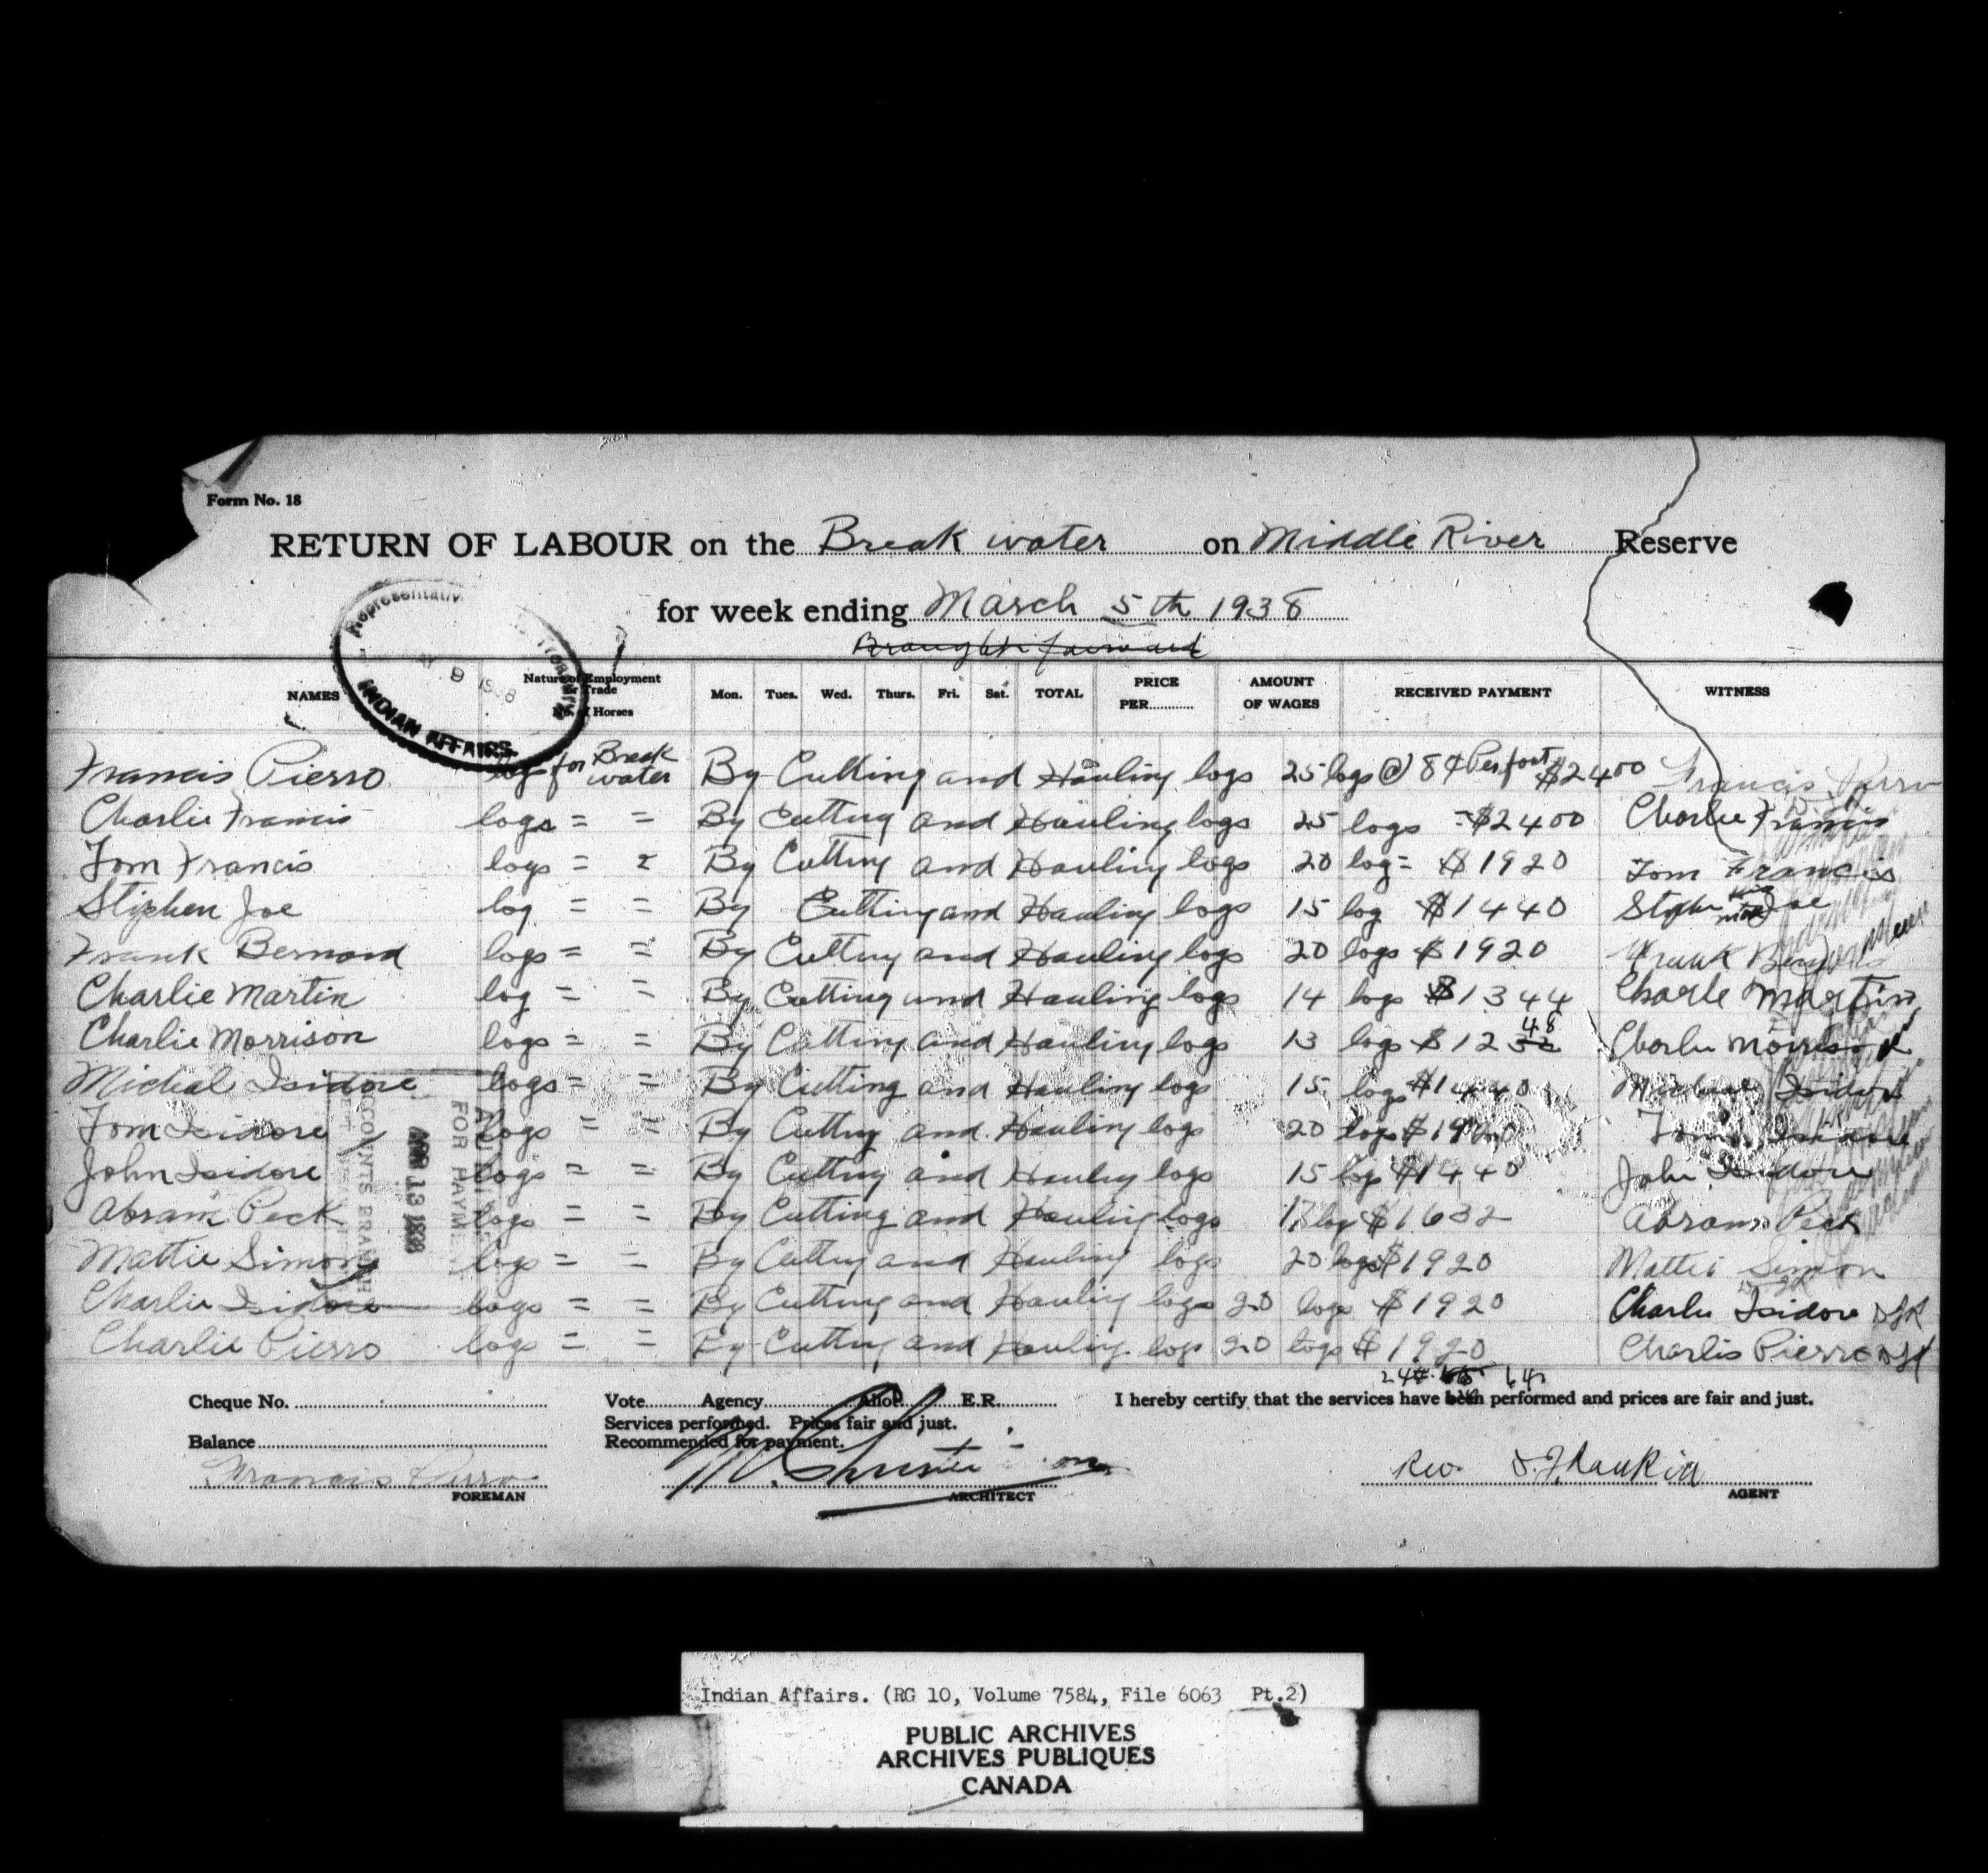 Form No. 18
RETURN OF LABOUR on the Break water on Middle River Reserve
for week ending March 5th 1938
Brought forward
Representative Treasury
9 1938
INDIAN AFFAIRS
NAMES Nature of Employment or Trade No. of Horses Mon. Tues. Wed. Thurs. Fri. Sat. TOTAL PRICE PER AMOUNT OF WAGES RECEIVED PAYMENT WITNESS
Francis Pierro logs for Break water By Cutting and Hauling logs 25 logs @ 8¢ Per foot $24 00 Francis Pierro
Charlie Francis logs = = By Cutting and Hauling logs 25 logs = $24 00 Charlie Francis
Tom Francis logs = = By Cutting and Hauling logs 20 log = $19 20 Tom Francis
Stephen Joe log = = By Cutting and Hauling logs 15 log $14 40 Stephen Joe
Frank Bernard logs = = By Cutting and Hauling logs 20 logs $19 20 Frank
Charlie Martin log = = By Cutting and Hauling logs 14 logs $13 44 Charlie Martin
Charlie Morrison logs = = By Cutting and Hauling logs 13 logs $12 48 Charlie Morrison
Michal Isidore logs = = By Cutting and Hauling logs 15 logs $14 40 Isidore
Tom Isidore logs = = By Cutting and Hauling logs 20 logs $19 Tom Isidore
John Isidore logs = = By Cutting and Hauling logs 15 logs $14 40 John Isidore
Abram Peck logs = = By Cutting and Hauling logs 17 logs $16 32 Abram Peck
Mattie Simon logs = = By Cutting and Hauling logs 20 logs $19 20 Mattie Simon
Charlie Isidore logs = = By Cutting and Hauling logs 20 logs $19 20 Charlie Isidore
Charlie Pierro logs = = By Cutting and Hauling logs 20 logs $19 20 Charlie Pierro
ACCOUNTS BRANCH
APR 13 1938
FOR PAYMENT
Cheque No. Vote Agency Allot. E.R. I hereby certify that the services have been performed and prices are fair and just.
Services performed. Prices fair and just.
Balance Recommended for payment.
Francis Pierro Rev. D.J. Rankin
FOREMAN ARCHITECT AGENT
Indian Affairs. (RG 10, Volume 7584, File 6063 Pt.2)
PUBLIC ARCHIVES
ARCHIVES PUBLIQUES
CANADA